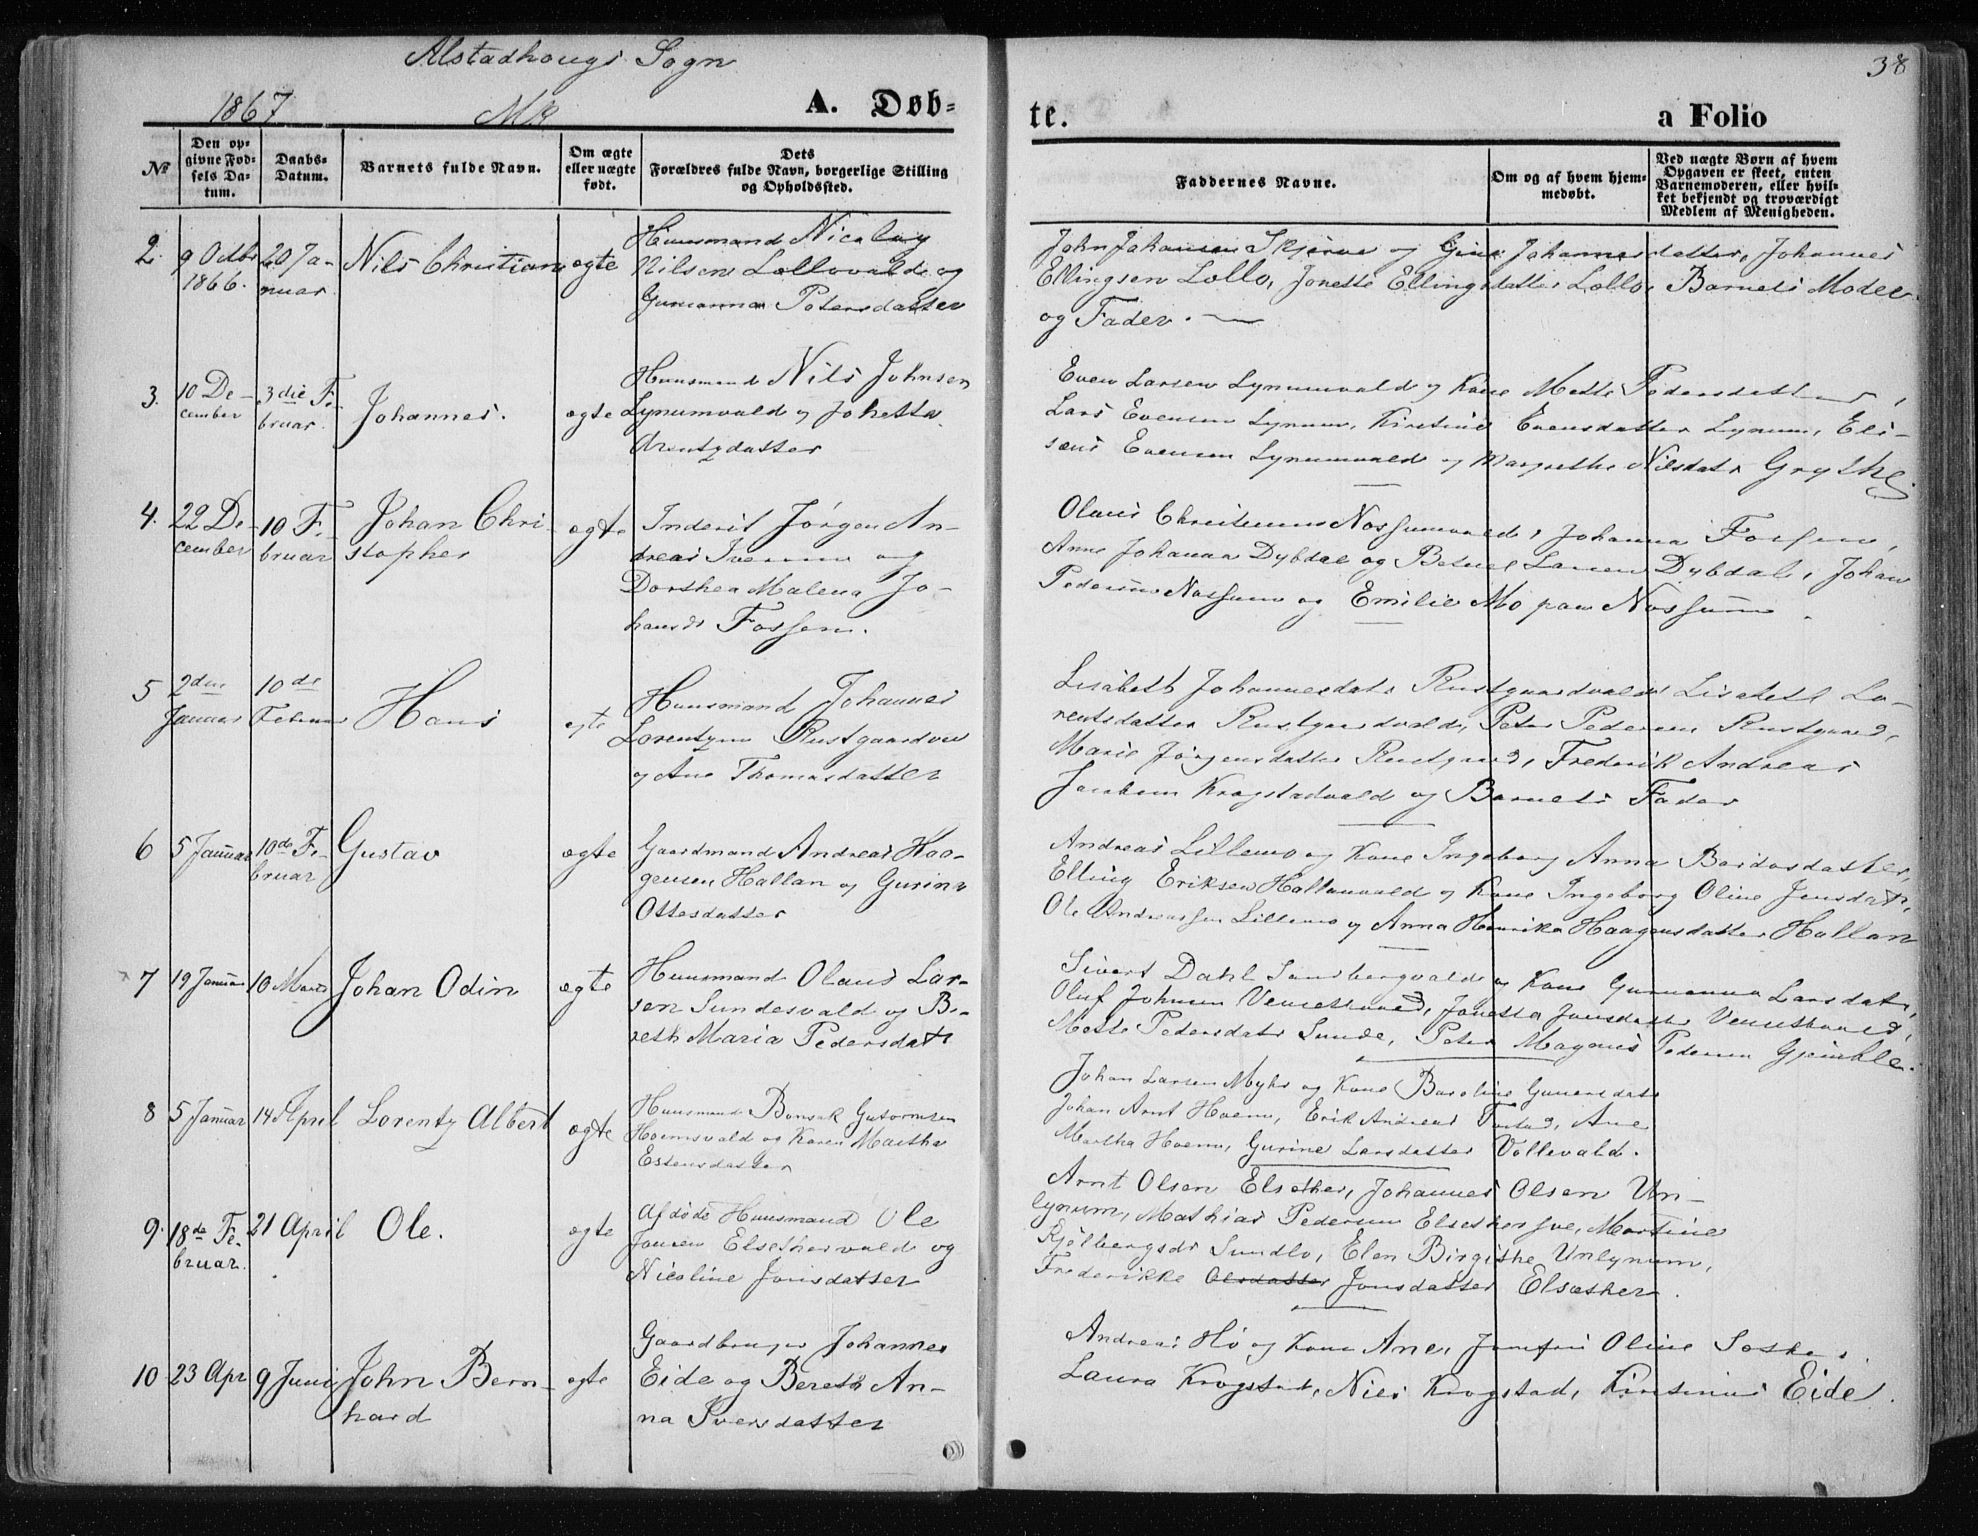 Alstadhougs Sogn
38
1867
Mk
A. Døb-
te.
a Folio
No
Den op-
givne Fød-
sels Da-
tum.
Daabs-
Datum.
Barnets fulde Navn.
Om ægte
eller uægte
født.
Dets
Forældres fulde Navn, borgerlige Stilling
og Opholdssted.
Faddernes Navne.
Om og af hvem hjem-
medøbt.
Ved uægte Børn af hvem
Opgaven er skeet, enten
Barnemoderen, eller hvil-
ket bekjendt og troværdigt
Medlem af Menigheden.
2.
9 Octbr
1866.
20 Ja-
nuar
Nils Christian
ægte
Huusmand Nicolay
Nilsen Lollovald og
Gunanna Petersdatter
John Johansen Skjerve og Gine Johannesdatter, Johannes
Ellingsen Lollo, Jonette Ellingsdatter Lollo, Barnets Moder
og Fader.
3.
10 De-
cember
3die Fe-
bruar.
Johannes.
ægte
Huusmand Nils Johnsen
Lynumvald og Johetta
Arentzdatter
Even Larsen Lynumvald og Kone Mette Pedersdatter,
Lars Evensen Lynum, Kirstine Evensdatter Lynum, Eli-
sæus Evensen Lynumvald og Margrethe Nilsdatr Grythe
4.
22 De-
cember
10 Fe-
bruar
Johan Chri-
stopher
ægte
Inderst Jørgen An-
dreas Iversen og
Dorthea Malena Jo-
hansdr Fossem.
Olaus Christensen Nossumvald, Johanna Fossem,
Anne Johanna Dybdal og Betuel Larsen Dybdal, Johan
Pedersen Nossum og Emilie Mo paa Nossum.
5
2den
Januar
10de
Februar
Hans
ægte
Huusmand Johannes
Lorentzen Rustgaardva
og Ane Thomasdatter
Lisabeth Johannesdatr Rustgaardvald Lisabeth Lo-
rentsdatter Rustgaardvald, Peter Pedersen Rustgaard,
Marie Jørgensdatter Rustgaard, Frederik Andreas
Jacobsen Krogstadvald og Barnets Fader
6
5 Januar
10de Fe-
bruar
Gustav
ægte
Gaardmand Andreas Haa-
gensen Hallan og Gurina
Ottesdatter
Andreas Lillemo og Kone Ingeborg Anna Bardosdatter,
Elling Eriksen Hallanvald og Kone Ingeborg Oline Jensdatr,
Ole Andreassen Lillemo og Anna Henrika Haagensdatter Hallan
7
19 Januar
10 Marts
Johan Odin
ægte
Huusmand Olaus Lar-
sen Sundesvald og Be-
reth Maria Pedersdatr
Sivert Dahl Sundbergvald og Kone Gunanna Larsdatr,
Oluf Johnsen Vensethaard, Jonetta Jonsdatter Vensethaard,
Mette Pedersdatr Sunde, Peter Magnus Pedersen Gjemble.
8
5 Januar
14 April
Lorentz Albert
ægte
Huusmand Bonsak Gutormsen
Hoemsvald og Karen Martha
Estensdatter
Johan Larsen Myhr og Kone Baroline Gunersdatr
Johan Arnt Hoem, Erik Andreas Tostad, Ane
Martha Hoem, Gurine Larsdatter Vollevald.
9.
18de Fe-
bruar.
21 April
Ole.
ægte
Afdøde Huusmand Ole
Jonsen Elsethervald og
Nicoline Jonsdatter
Arnt Olsen Elsether, Johannes Olsen Un-
lynum, Mathias Pedersen Elsether sve, Martine
Kjølbergsdr Sundlo, Elen Birgithe Unlynum,
Frederikke Olsdatter Jonsdatter Elsæther.
10
23 Apr
9 Juni
John Bern-
hard
ægte
Gaardbruger Johannes
Eide og Bereth An-
na Iversdatter
Andreas Hø og Kone Ane, Oline
Laura Krogstad, Niels Krogstad, Kirstine Eide.